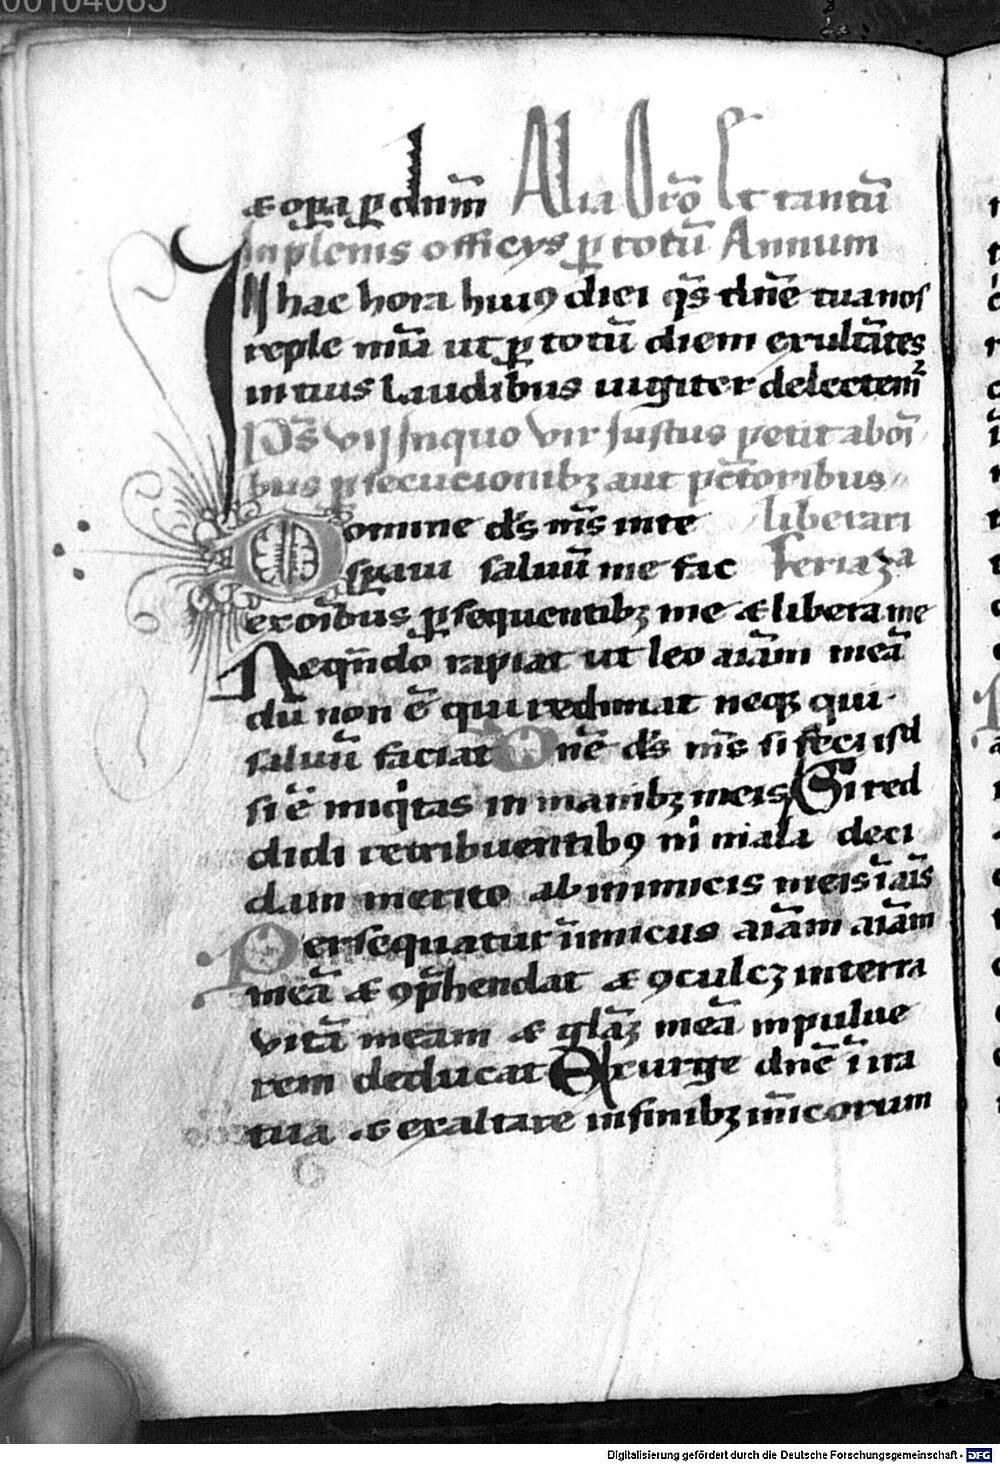 00104065
& opa p dnm̄ Alia Orō Et tantū
In plenis officijs p totū Annum
IN hac hora huiꝯ diei qs̄ dn̄e tua nos
reple mīa ut p totū diem exultātes
in tuis laudibus iugiter delectem̄
Ps̄ vij In quo vir Iustus petit ab oī
bus psecucionibꝫ aut pctoribus
Domine ds̄ ms̄ in te liberari
spaui saluū me fac Feria 2ᵃ
ex oībus psequentibꝫ me & libera me
Neqn̄do rapiat ut leo aīam meā
dū non ē qui redimat neqꝫ qui
saluū faciat Dn̄e ds̄ ms̄ si feci isd
si ē iniqtas in manibꝫ meis Si red
didi retribuentibꝯ m mala deci
dam merito ab inimicis meis īāīs
Persequatur īimicus aīam aīam
meā & ꝯprhendat & ꝯculcꝫ in terra
vitā meam & glāꝫ meā in pulue
rem deducat Exurge dn̄e ī ira
tua & exaltare in finibꝫ īmicorum
Digitalisierung gefördert durch die Deutsche Forschungsgemeinschaft - DFG